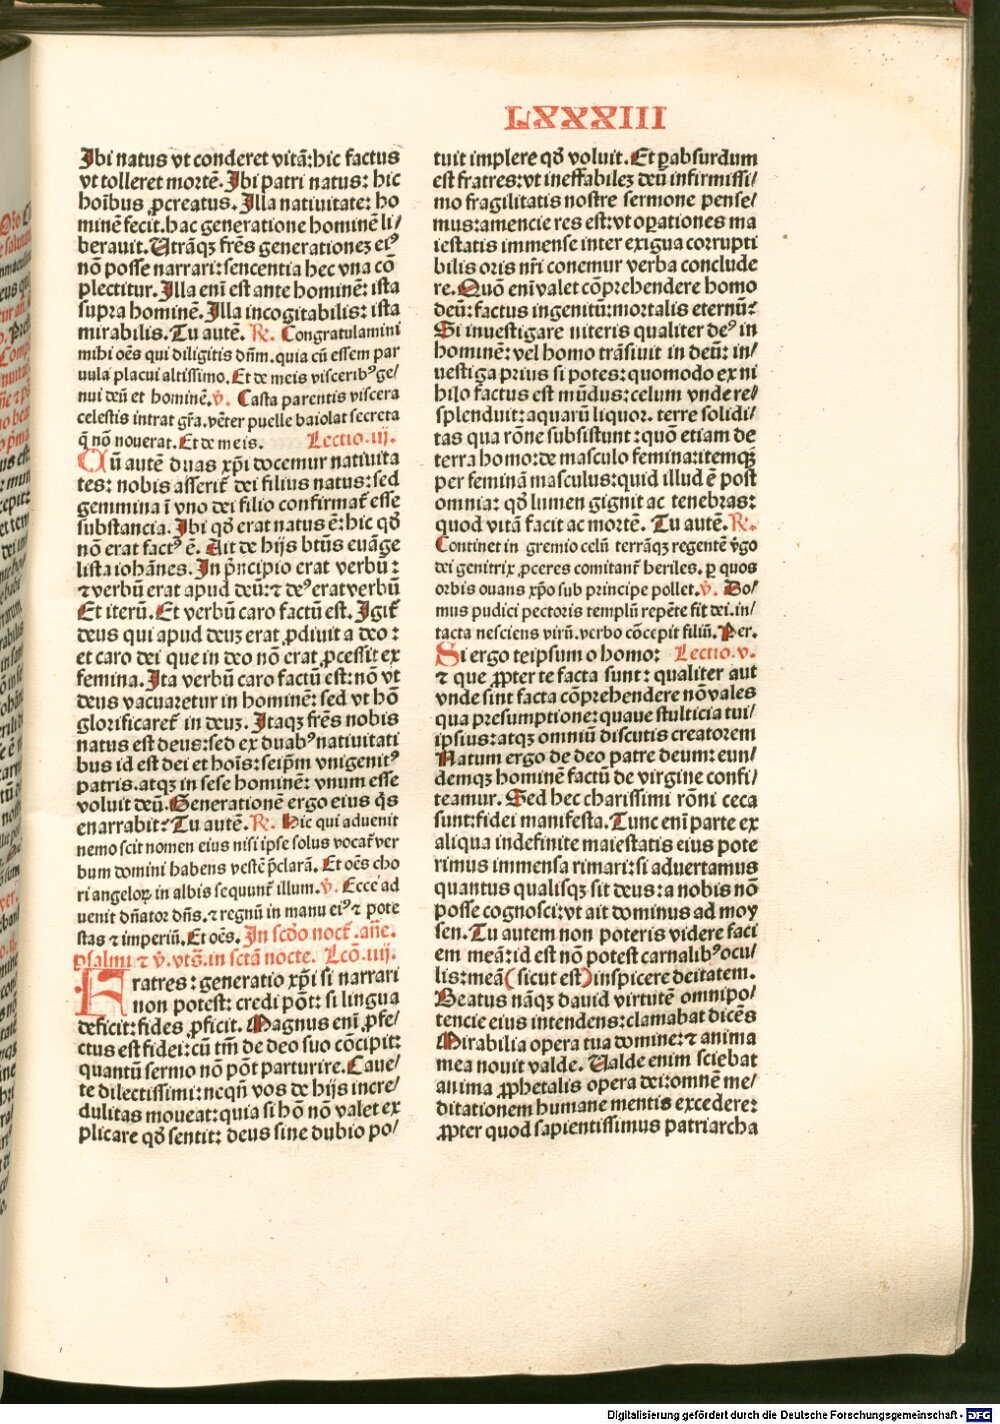 LXXXIII
Ibi natus vt conderet vitā: hic factus
vt tolleret mortē. Ibi patri natus: hic
hoībus ꝓcreatus. Illa natiuitate: ho
minē fecit. hac generatione hominē li/
berauit. Utrāqꝫ frēs generationeꝫ eiꝰ
nō posse narrari: sencentia hec vna cō
plectitur. Illa enī est ante hominē: ista
supra hominē. Illa incogitabilis: ista
mirabilis. Tu autē. ℟. Congratulamini
mihi oēs qui diligitis dn̄m. quia cū essem par
uula placui altissimo. Et de meis visceribꝰ ge/
nui deū et hominē. ℣. Casta parentis viscera
celestis intrat gr̄a. vēter puelle baiolat secreta
q̄ nō nouerat. Et de meis. Lectio. iij.
Cū autē duas xp̄i docemur natiuita
tes: nobis asserit̄ dei filius natus: sed
gemmina ī vno dei filio confirmat̄ esse
substancia. Ibi qd̄ erat natus ē: hic qd̄
nō erat factꝰ ē. Ait de hijs btūs euāge
lista iohānes. In p̄ncipio erat verbū:
⁊ verbū erat apud deū: ⁊ deꝰ erat verbū
Et iterū. Et verbū caro factū est. Igit̄
deus qui apud deuꝫ erat ꝓdiuit a deo:
et caro dei que in deo nō erat ꝓcessit ex
femina. Ita verbū caro factū est: nō vt
deus vacuaretur in hominē: sed vt hō
glorificaret̄ in deuꝫ. Itaqꝫ frēs nobis
natus est deus: sed ex duabꝰ natiuitati
bus id est dei et hoīs: seip̄m vnigenitꝰ
patris. atqꝫ in sese hominē: vnum esse
voluit deū. Generationē ergo eius q̄s
enarrabit? Tu autē. ℟. Hic qui aduenit
nemo scit nomen eius nisi ipse solus vocat̄ ver
bum domini habens vestē p̄clarā. Et oēs cho
ri angeloꝝ in albis sequunt̄ illum. ℣. Ecce ad
uenit dn̄ator dn̄s. ⁊ regnū in manu eiꝰ ⁊ pote
stas ⁊ imperiū. Et oēs. In scd̄o noct̄. an̄e.
psalmi ⁊ ℣. vts̄. in sctā nocte. Lcō. iiij.
Fratres: generatio xp̄i si narrari
non potest: credi pōt: si lingua
deficit: fides ꝓficit. Magnus enī ꝓfe/
ctus est fidei: cū tm̄ de deo suo cōcipit:
quantū sermo nō pōt parturire. Caue/
te dilectissimi: neqn̄ vos de hijs incre/
dulitas moueat: quia si hō nō valet ex
plicare qd̄ sentit: deus sine dubio po/
tuit implere qd̄ voluit. Et ꝑabsurdum
est fratres: vt ineffabileꝫ deū infirmissi/
mo fragilitatis nostre sermone pense/
mus: amencie res est: vt oꝑationes ma
iestatis immense inter exigua corrupti
bilis oris nr̄i conemur verba conclude
re. Quō enī valet cōp̄rehendere homo
deū: factus ingenitū: mortalis eternū?
Si inuestigare niteris qualiter deꝰ in
hominē: vel homo trāsiuit in deū: in/
uestiga prius si potes: quomodo ex ni
hilo factus est mūdus: celum vnde re/
splenduit: aquarū liquor. terre solidi/
tas qua rōne subsistunt: quō etiam de
terra homo: de masculo femina: itemqꝫ
per feminā masculus: quid illud ē post
omnia: qd̄ lumen gignit ac tenebras:
quod vitā facit ac mortē. Tu autē. ℟.
Continet in gremio celū terrāqꝫ regentē v̄go
dei genitrix ꝓceres comitant̄ heriles. ꝑ quos
orbis ouans xp̄o sub principe pollet. ℣. Do/
mus pudici pectoris templū repēte fit dei. in/
tacta nesciens virū. verbo cōcepit filiū. Per.
Si ergo teipsum o homo: Lectio. v.
⁊ que ꝓpter te facta sunt: qualiter aut
vnde sint facta cōprehendere nō vales
qua presumptione: quaue stulticia tui/
ipsius: atqꝫ omniū discutis creatorem
Natum ergo de deo patre deum: eun/
demqꝫ hominē factū de virgine confi/
teamur. Sed hec charissimi rōni ceca
sunt: fidei manifesta. Tunc enī parte ex
aliqua indefinite maiestatis eius pote
rimus immensa rimari: si aduertamus
quantus qualisqꝫ sit deus: a nobis nō
posse cognosci: vt ait dominus ad moy
sen. Tu autem non poteris videre faci
em meā: id est nō potest carnalibꝰ ocu/
lis: meā (sicut est) inspicere deitatem.
Beatus nāqꝫ dauid virtutē omnipo/
tencie eius intendens: clamabat dicēs
Mirabilia opera tua domine: ⁊ anima
mea nouit valde. Ualde enim sciebat
anima ꝓphetalis opera dei: omnē me/
ditationem humane mentis excedere:
ꝓpter quod sapientissimus patriarcha
Digitalisierung gefördert durch die Deutsche Forschungsgemeinschaft - DFG